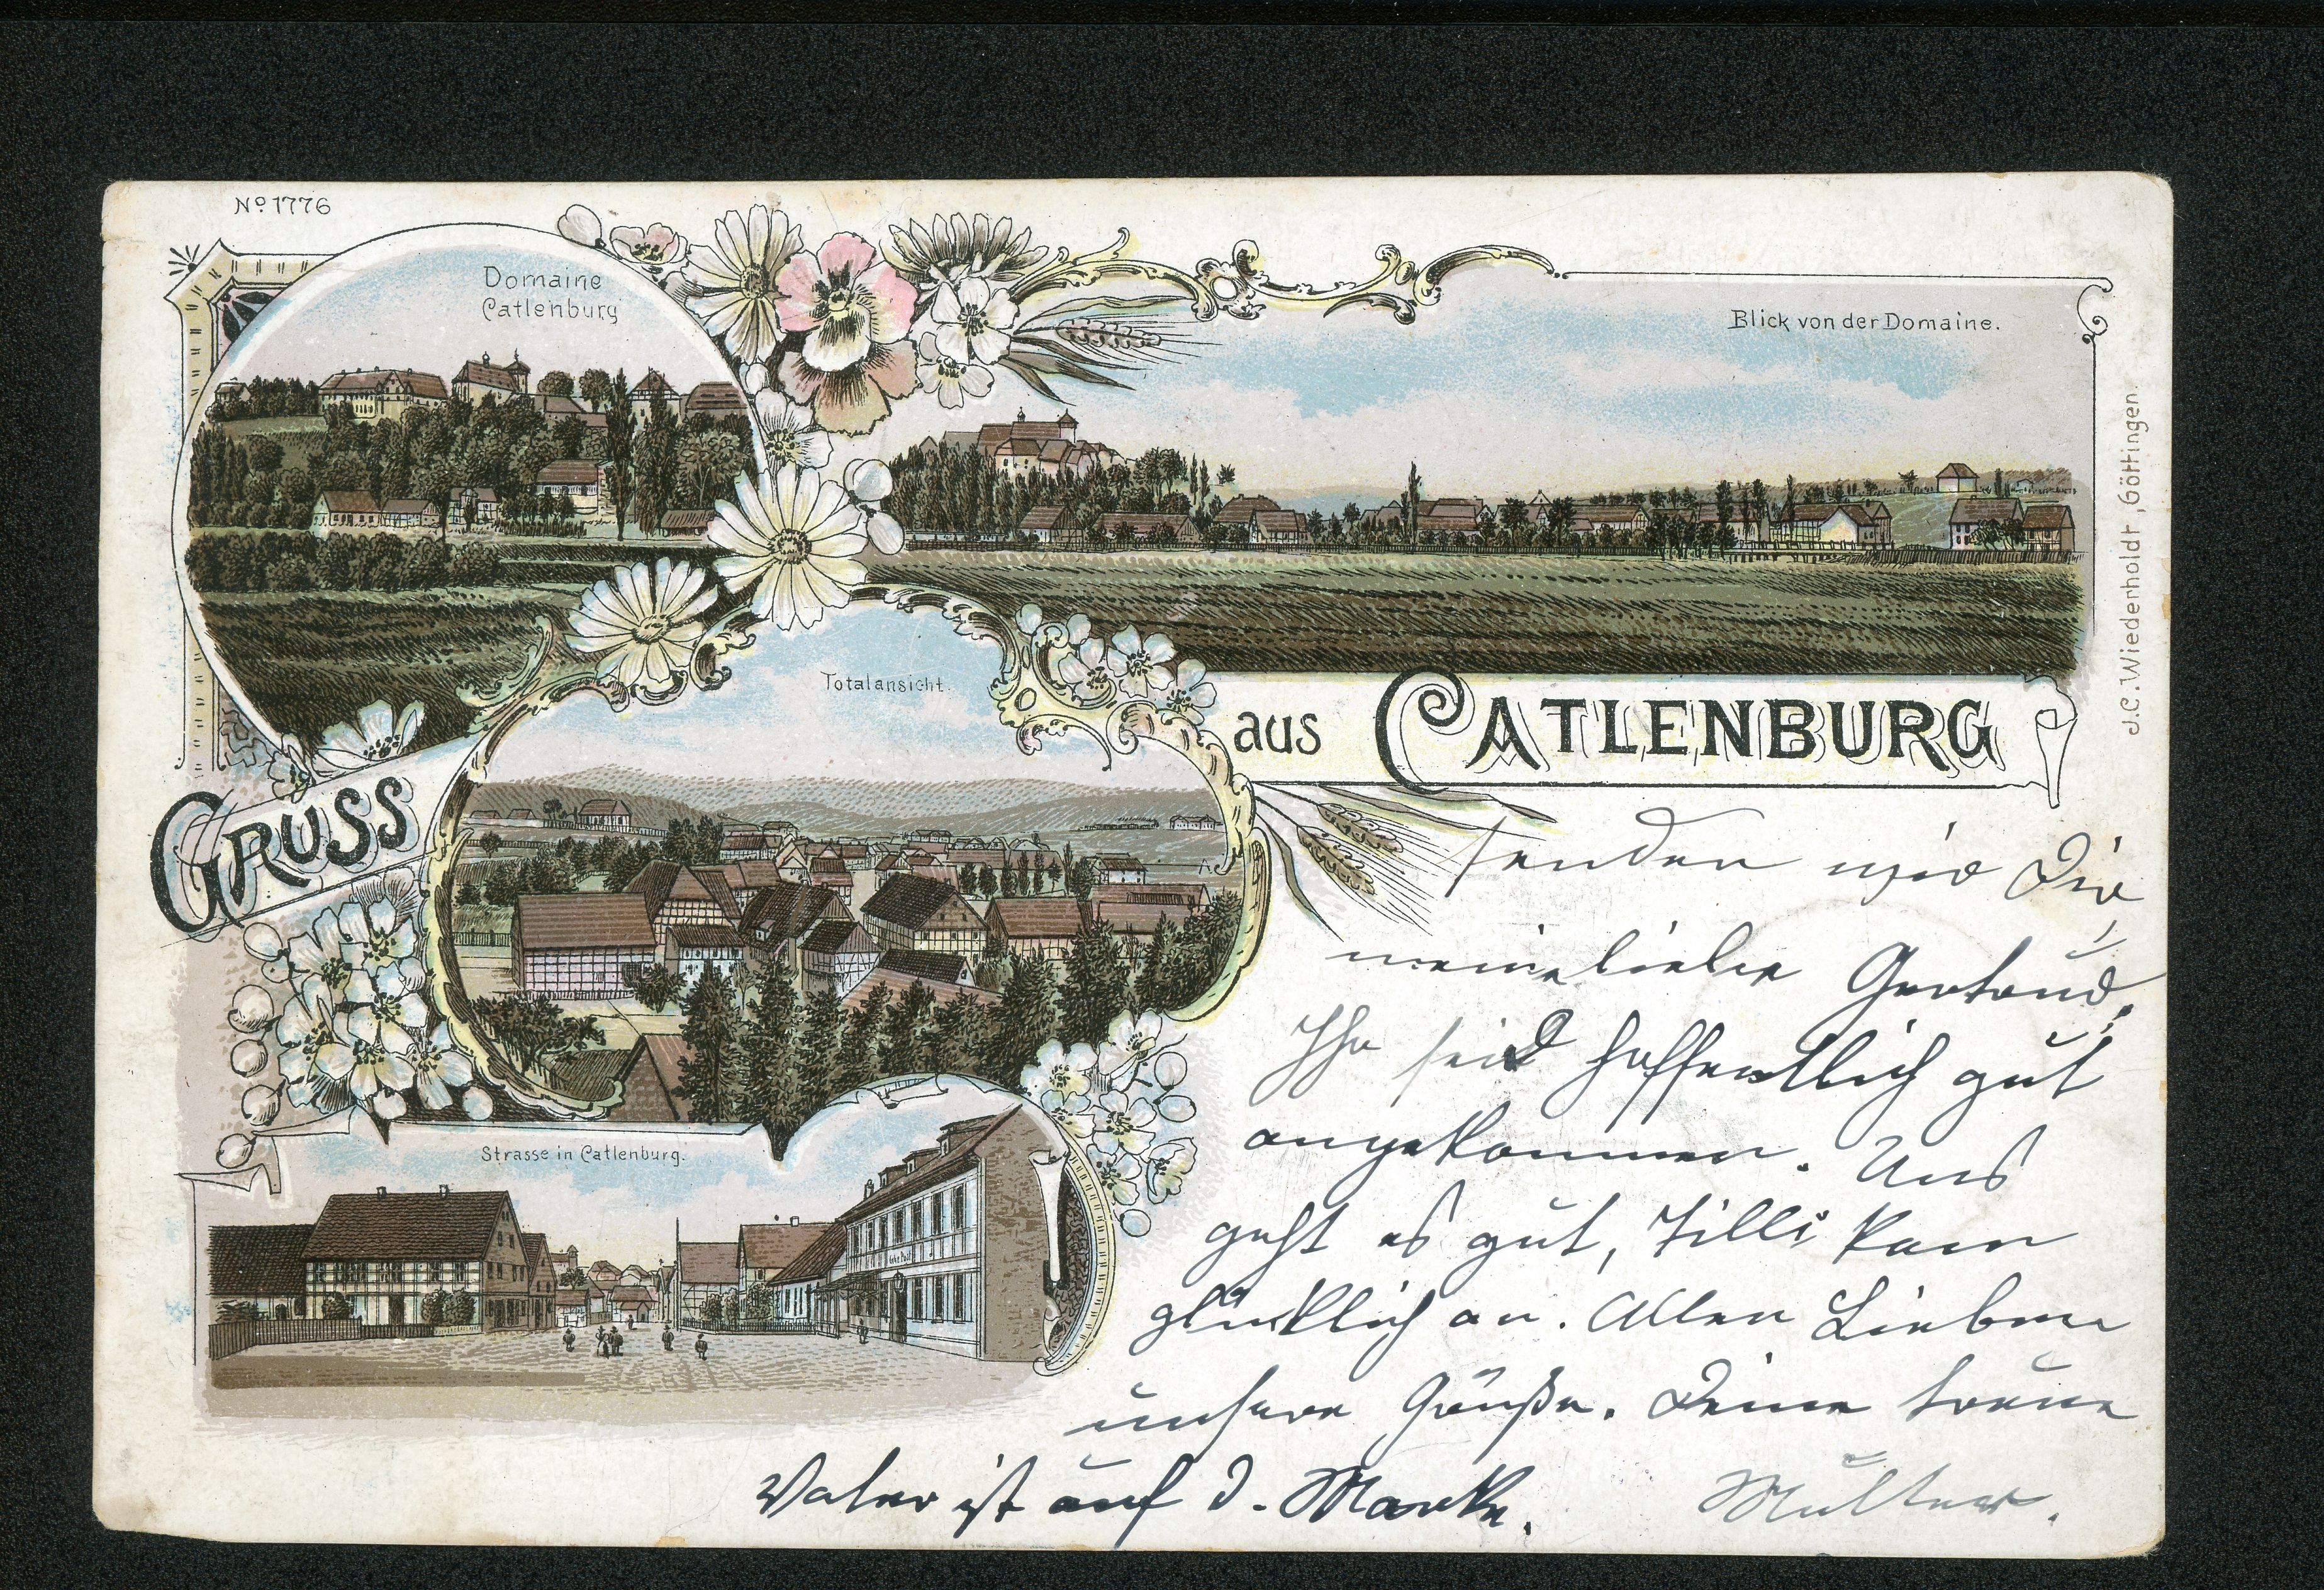 No. 1776
Domaine
Catlenburg
Blick von der Domaine.
J.C. Wiederholdt, Göttingen.
Totalansicht.
GRUSS aus CATLENBURG
Strasse in Catlenburg.
senden wir Dir
meine liebe Gertrud,
Ihr seid hoffentlich gut
angekommen. Uns
geht es gut, Tilli kam
glücklich an. Allen Lieben
unsere Grüße. Deine treue
Mutter.
Vater ist auf d.